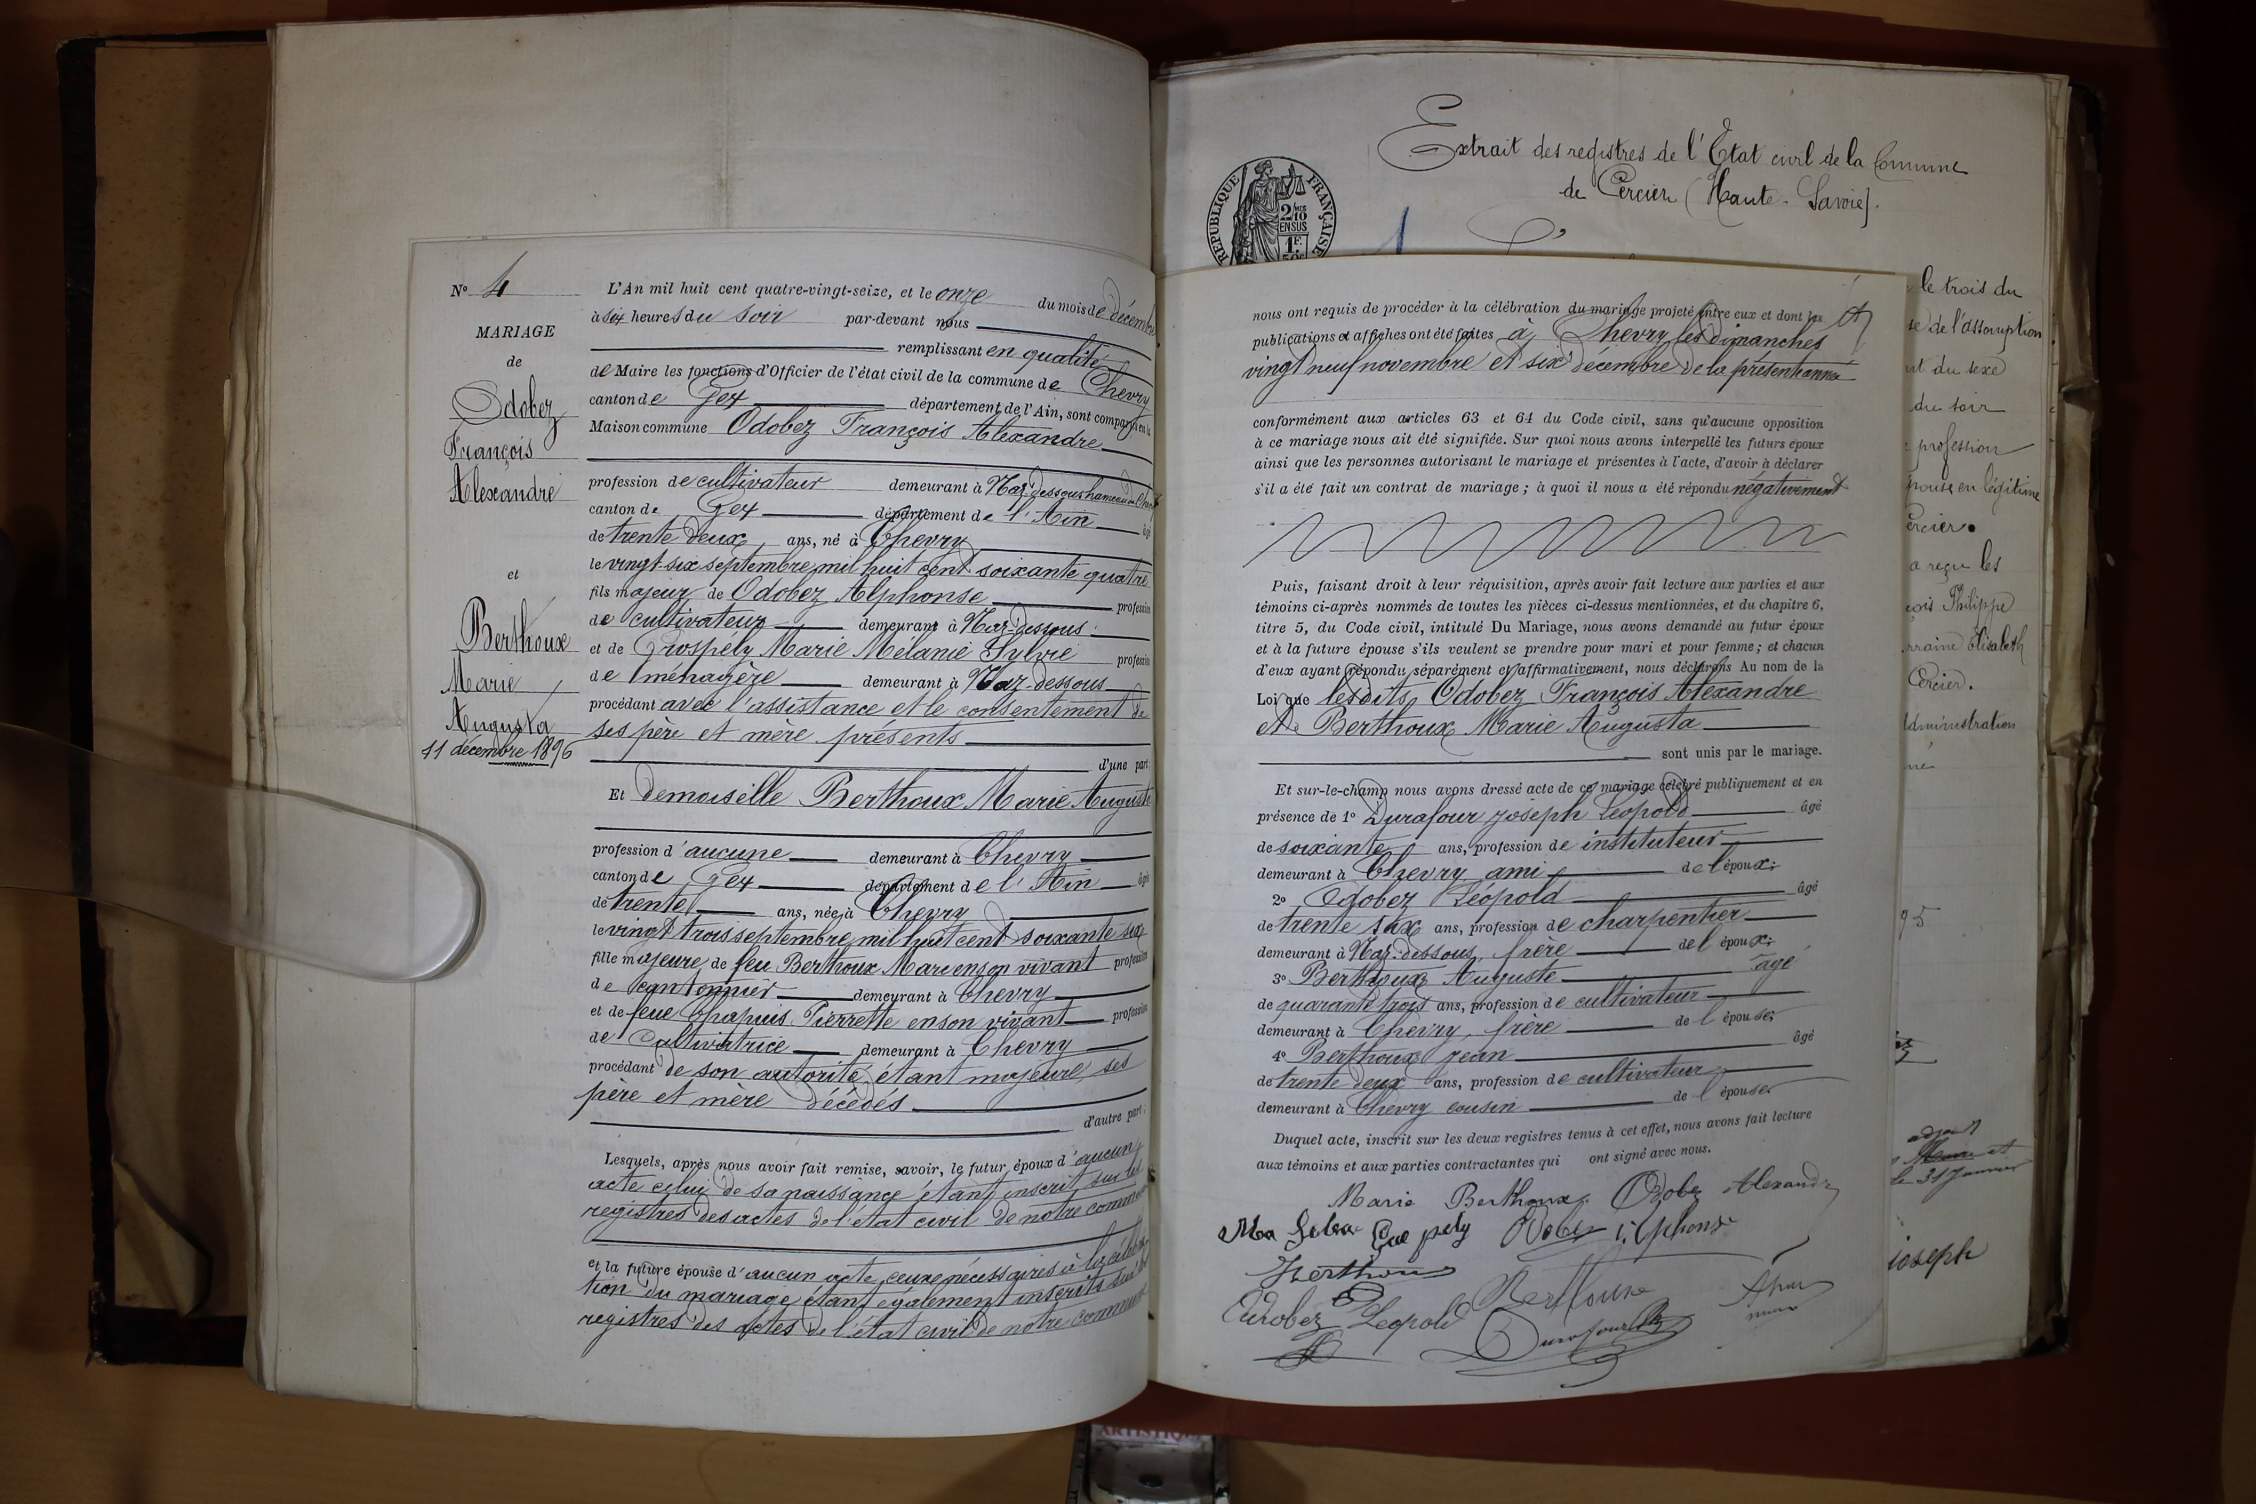 Nº 4
MARIAGE
de
Odobez
François
Alexandre
et
Berthoux
Marie
Augusta
11 décembre 1896
L'An mil huit cent quatre-vingt-seize, et le onze du mois de décembre
à six heures du soir par-devant nous
remplissant en qualité
de Maire les fonctions d'Officier de l'état civil de la commune de Chevry
canton de Gex département de l'Ain, sont comparus en la
Maison commune Odobez François Alexandre
profession de cultivateur demeurant à Naz-dessous hameau de Chevry
canton de Gex département de l'Ain âgé
de trente deux ans, né à Chevry
le vingt-six septembre mil huit cent soixante quatre
fils majeur de Odobez Alphonse profession
de cultivateur demeurant à Naz-dessous
et de Prospély Marie Mélanie Sylvie profession
de ménagère demeurant à Naz-dessous
procédant avec l'assistance et le consentement de
ses père et mère présents
d'une part;
Et demoiselle Berthoux Marie Augusta
profession d'aucune demeurant à Chevry
canton de Gex département de l'Ain âgée
de trente ans, née à Chevry
le vingt trois septembre mil huit cent soixante six
fille majeure de feu Berthoux Marc en son vivant profession
de cantonnier demeurant à Chevry
et de feue Chapuis Pierrette en son vivant profession
de cultivatrice demeurant à Chevry
procédant de son autorité étant majeure, ses
père et mère décédés
d'autre part;
Lesquels, après nous avoir fait remise, savoir, le futur époux d'aucun
acte celui de sa naissance étant inscrit sur les
registres des actes de l'état civil de notre commune
et la future épouse d'aucun acte, ceux nécessaires à la célébra-
tion du mariage étant également inscrits sur les
registres des actes de l'état civil de notre commune
Extrait des registres de l'Etat civil de la Commune
de Cercier (Haute-Savoie).
RÉPUBLIQUE FRANÇAISE
2/10
EN SUS
1F.
50c
nous ont requis de procéder à la célébration du mariage projeté entre eux et dont les
publications et affiches ont été faites à Chevry les dimanches
vingt neuf novembre et six décembre de la présente année
conformément aux articles 63 et 64 du Code civil, sans qu'aucune opposition
à ce mariage nous ait été signifiée. Sur quoi nous avons interpellé les futurs époux
ainsi que les personnes autorisant le mariage et présentes à l'acte, d'avoir à déclarer
s'il a été fait un contrat de mariage; à quoi il nous a été répondu négativement
Puis, faisant droit à leur réquisition, après avoir fait lecture aux parties et aux
témoins ci-après nommés de toutes les pièces ci-dessus mentionnées, et du chapitre 6,
titre 5, du Code civil, intitulé Du Mariage, nous avons demandé au futur époux
et à la future épouse s'ils veulent se prendre pour mari et pour femme; et chacun
d'eux ayant répondu séparément et affirmativement, nous déclarons Au nom de la
Loi que lesdits Odobez François Alexandre
et Berthoux Marie Augusta
sont unis par le mariage.
Et sur-le-champ nous avons dressé acte de ce mariage célébré publiquement et en
présence de 1º Durafour Joseph Léopold âgé
de soixante ans, profession de instituteur
demeurant à Chevry ami de l'époux;
2º Odobez Léopold âgé
de trente six ans, profession de charpentier
demeurant à Naz-dessous, frère de l'époux;
3º Berthoux Auguste âgé
de quarante trois ans, profession de cultivateur
demeurant à Chevry, frère de l'épouse;
4º Berthoux Jean âgé
de trente deux ans, profession de cultivateur
demeurant à Chevry cousin de l'épouse.
Duquel acte, inscrit sur les deux registres tenus à cet effet, nous avons fait lecture
aux témoins et aux parties contractantes qui ont signé avec nous.
Marie Berthoux Odobez Alexandre
Odobez Alphonse
Berthoux
Berthoux
Odobez Léopold Durafour
le trois du
de l'assomption
du sexe
du soir
profession
épouse en légitime
Cercier.
a reçu les
Philippe
Elisabeth
Cercier.
administration
95
adjoint
le 31 Janvier
joseph